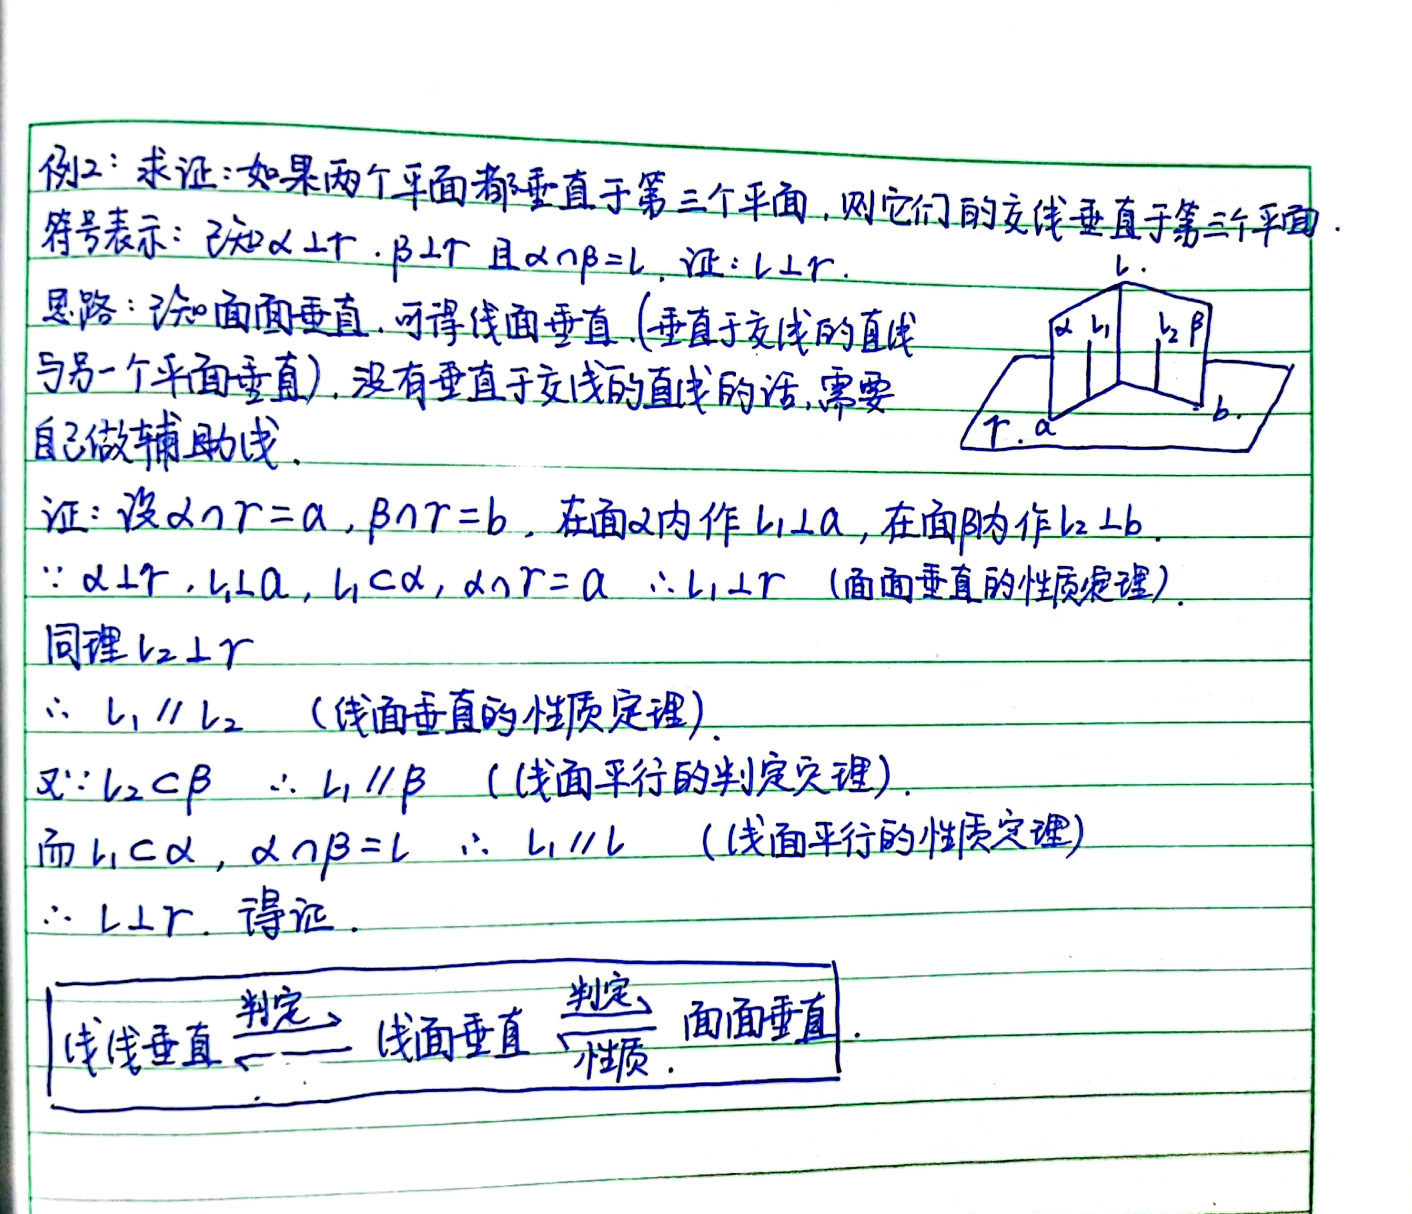 例2：求证：如果两个平面都垂直于第三个平面，则它们的交线垂直于第三个平面．
符号表示：已知α⊥γ．β⊥γ 且α∩β=l，证：l⊥γ．
思路：已知面面垂直．可得线面垂直．(垂直于交线的直线
与另一个平面垂直)．没有垂直于交线的直线的话，需要
自己做辅助线．
l．
α l₁ l₂ β
γ．a b．
证：设α∩γ=a，β∩γ=b，在面α内作l₁⊥a，在面β内作l₂⊥b．
∵α⊥γ．l₁⊥a，l₁⊂α，α∩γ=a ∴l₁⊥γ (面面垂直的性质定理)．
同理l₂⊥γ
∴ l₁∥l₂ (线面垂直的性质定理)．
又∵l₂⊂β ∴l₁∥β (线面平行的判定定理)．
而l₁⊂α，α∩β=l ∴ l₁∥l (线面平行的性质定理)
∴ l⊥γ．得证．
判定 判定
线线垂直 ⇌ 线面垂直 ⇌ 面面垂直．
性质．